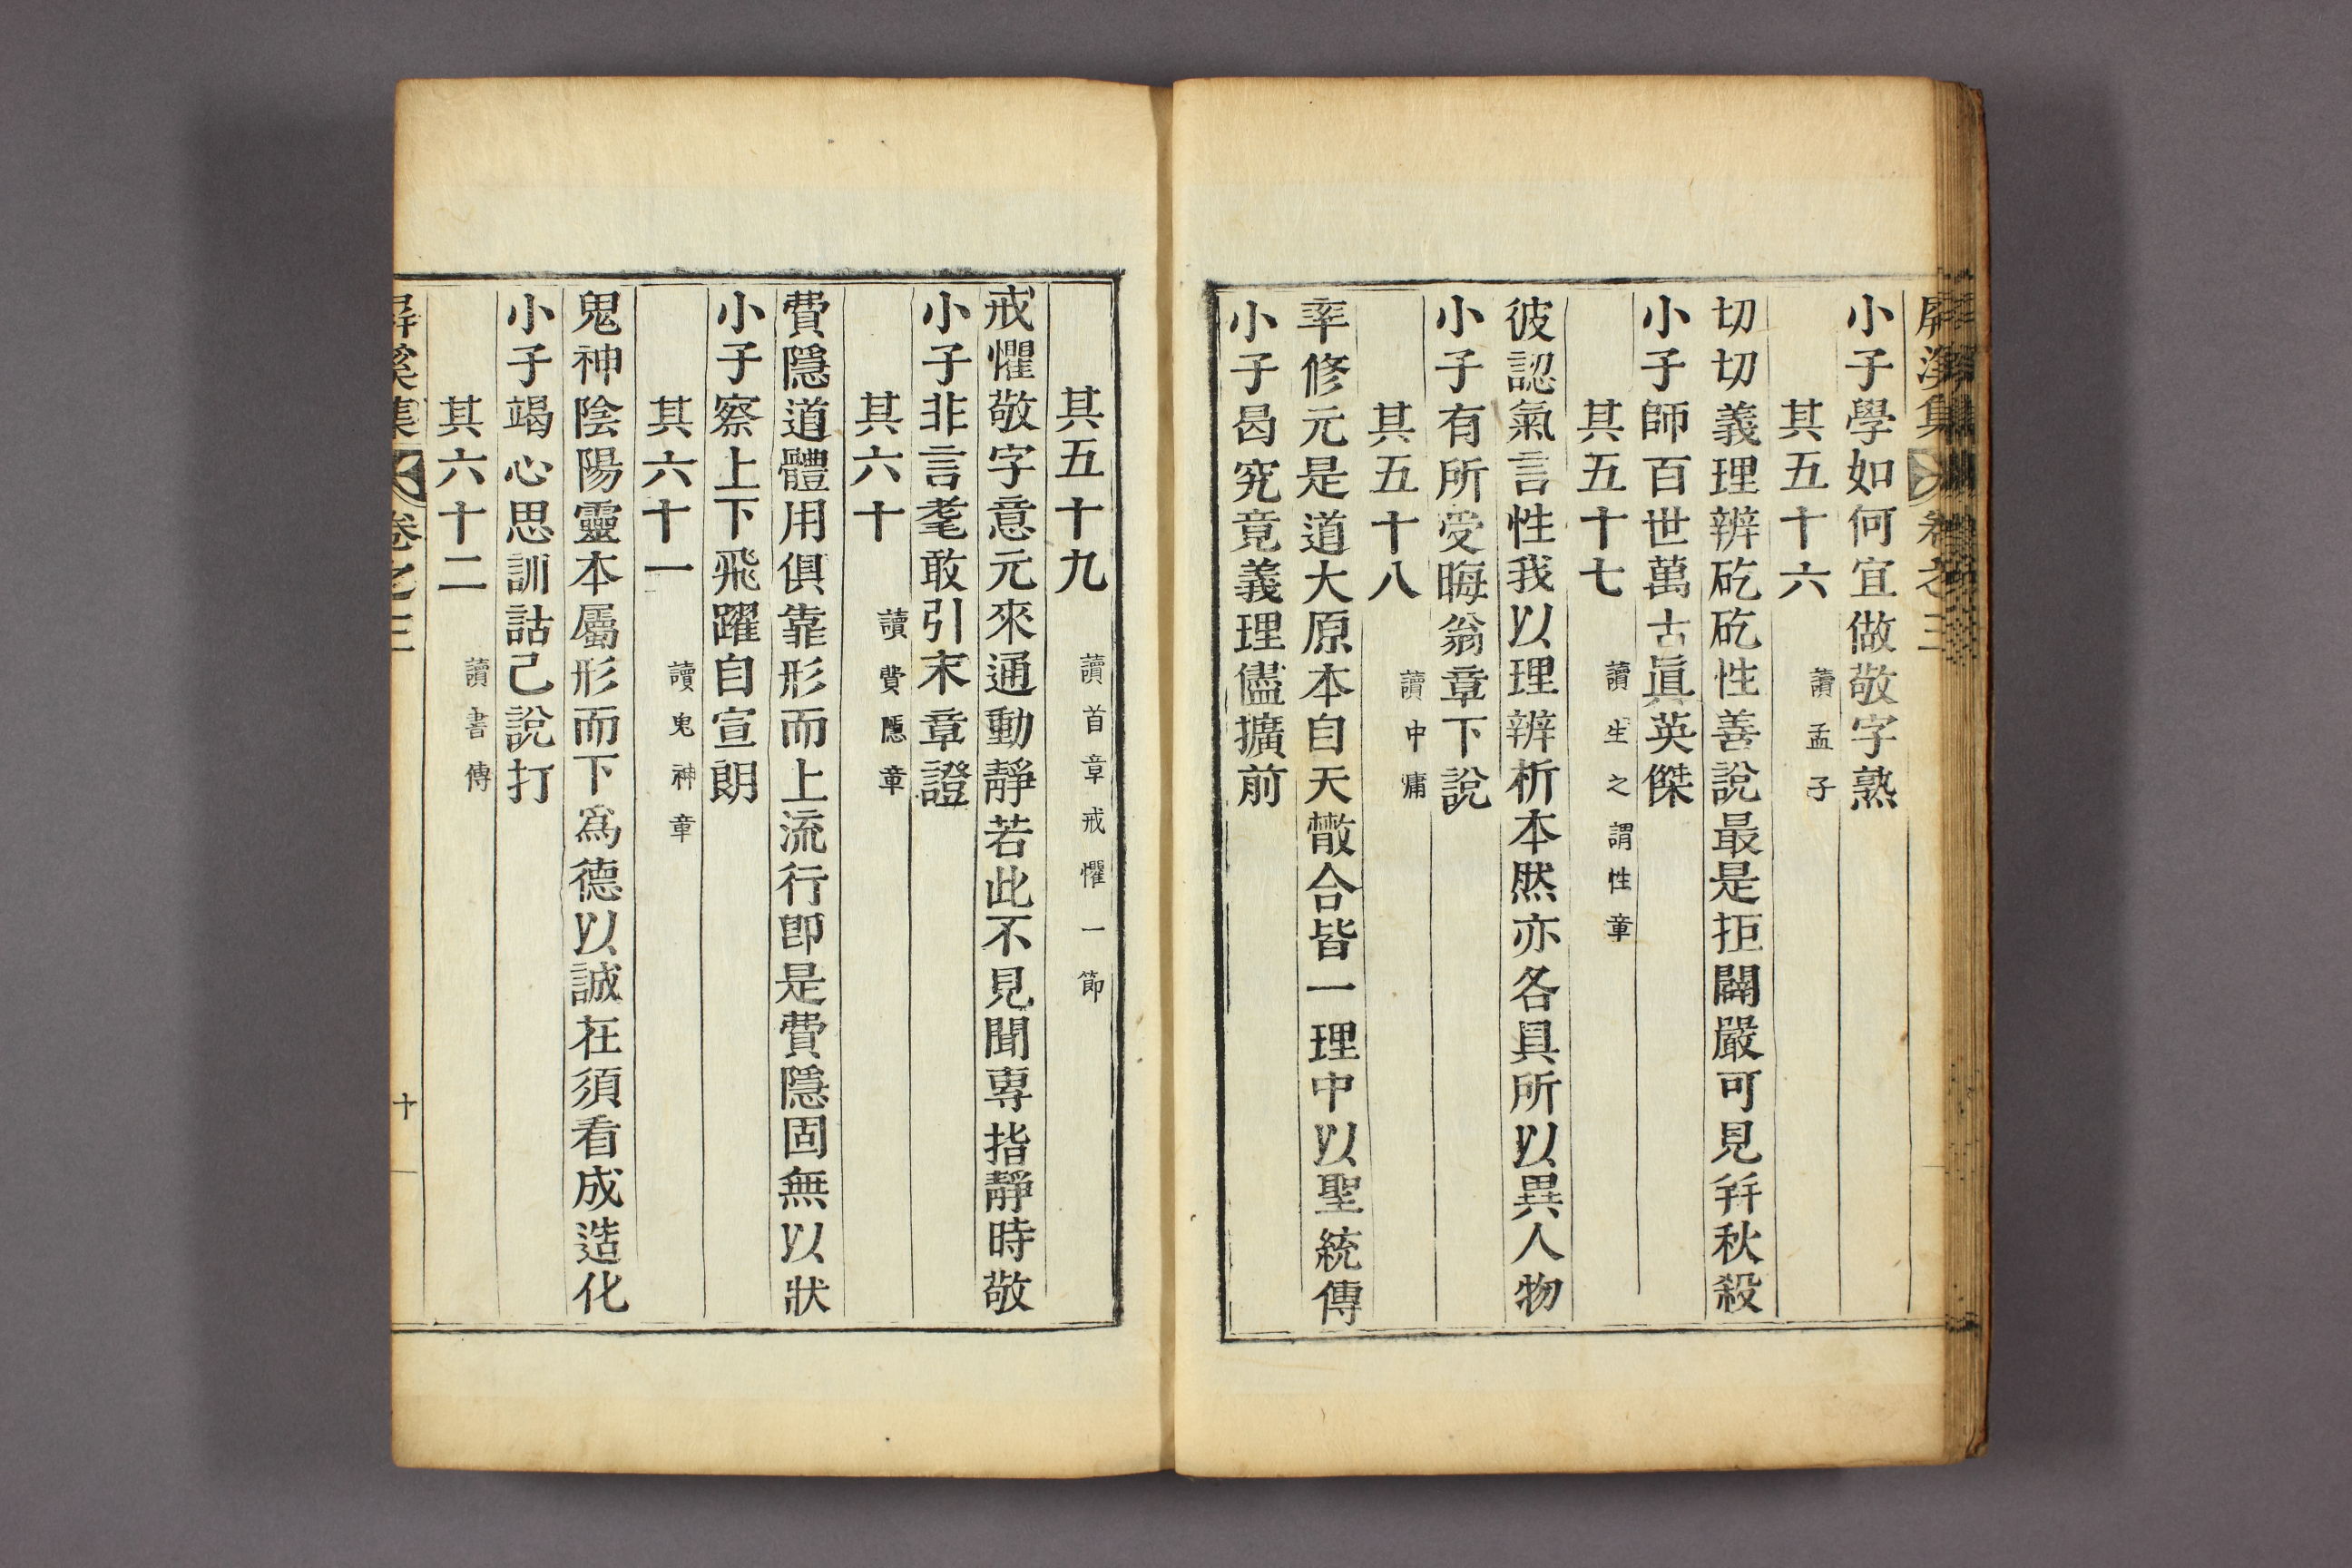 屏溪集 卷之三
小子學如何宜做敬字熟
其五十六 讀孟子
切切義理辨矻矻性善說最是拒闢嚴可見秋殺
小子師百世萬古眞英傑
其五十七 讀生之謂性章
彼認氣言性我以理辨析本然亦各具所以異人物
小子有所受晦翁章下說
其五十八 讀中庸
率修元是道大原本自天散合皆一理中以聖統傳
小子曷究竟義理儘擴前
其五十九 讀首章戒懼一節
戒懼敬字意元來通動靜若此不見聞專指靜時敬
小子非言耄敢引末章證
其六十 讀費隱章
費隱道體用俱靠形而上流行卽是費隱固無以狀
小子察上下飛躍自宣朗
其六十一 讀鬼神章
鬼神陰陽靈本屬形而下爲德以誠在須看成造化
小子竭心思訓詁己說打
其六十二 讀書傳
屏溪集 卷之三 十